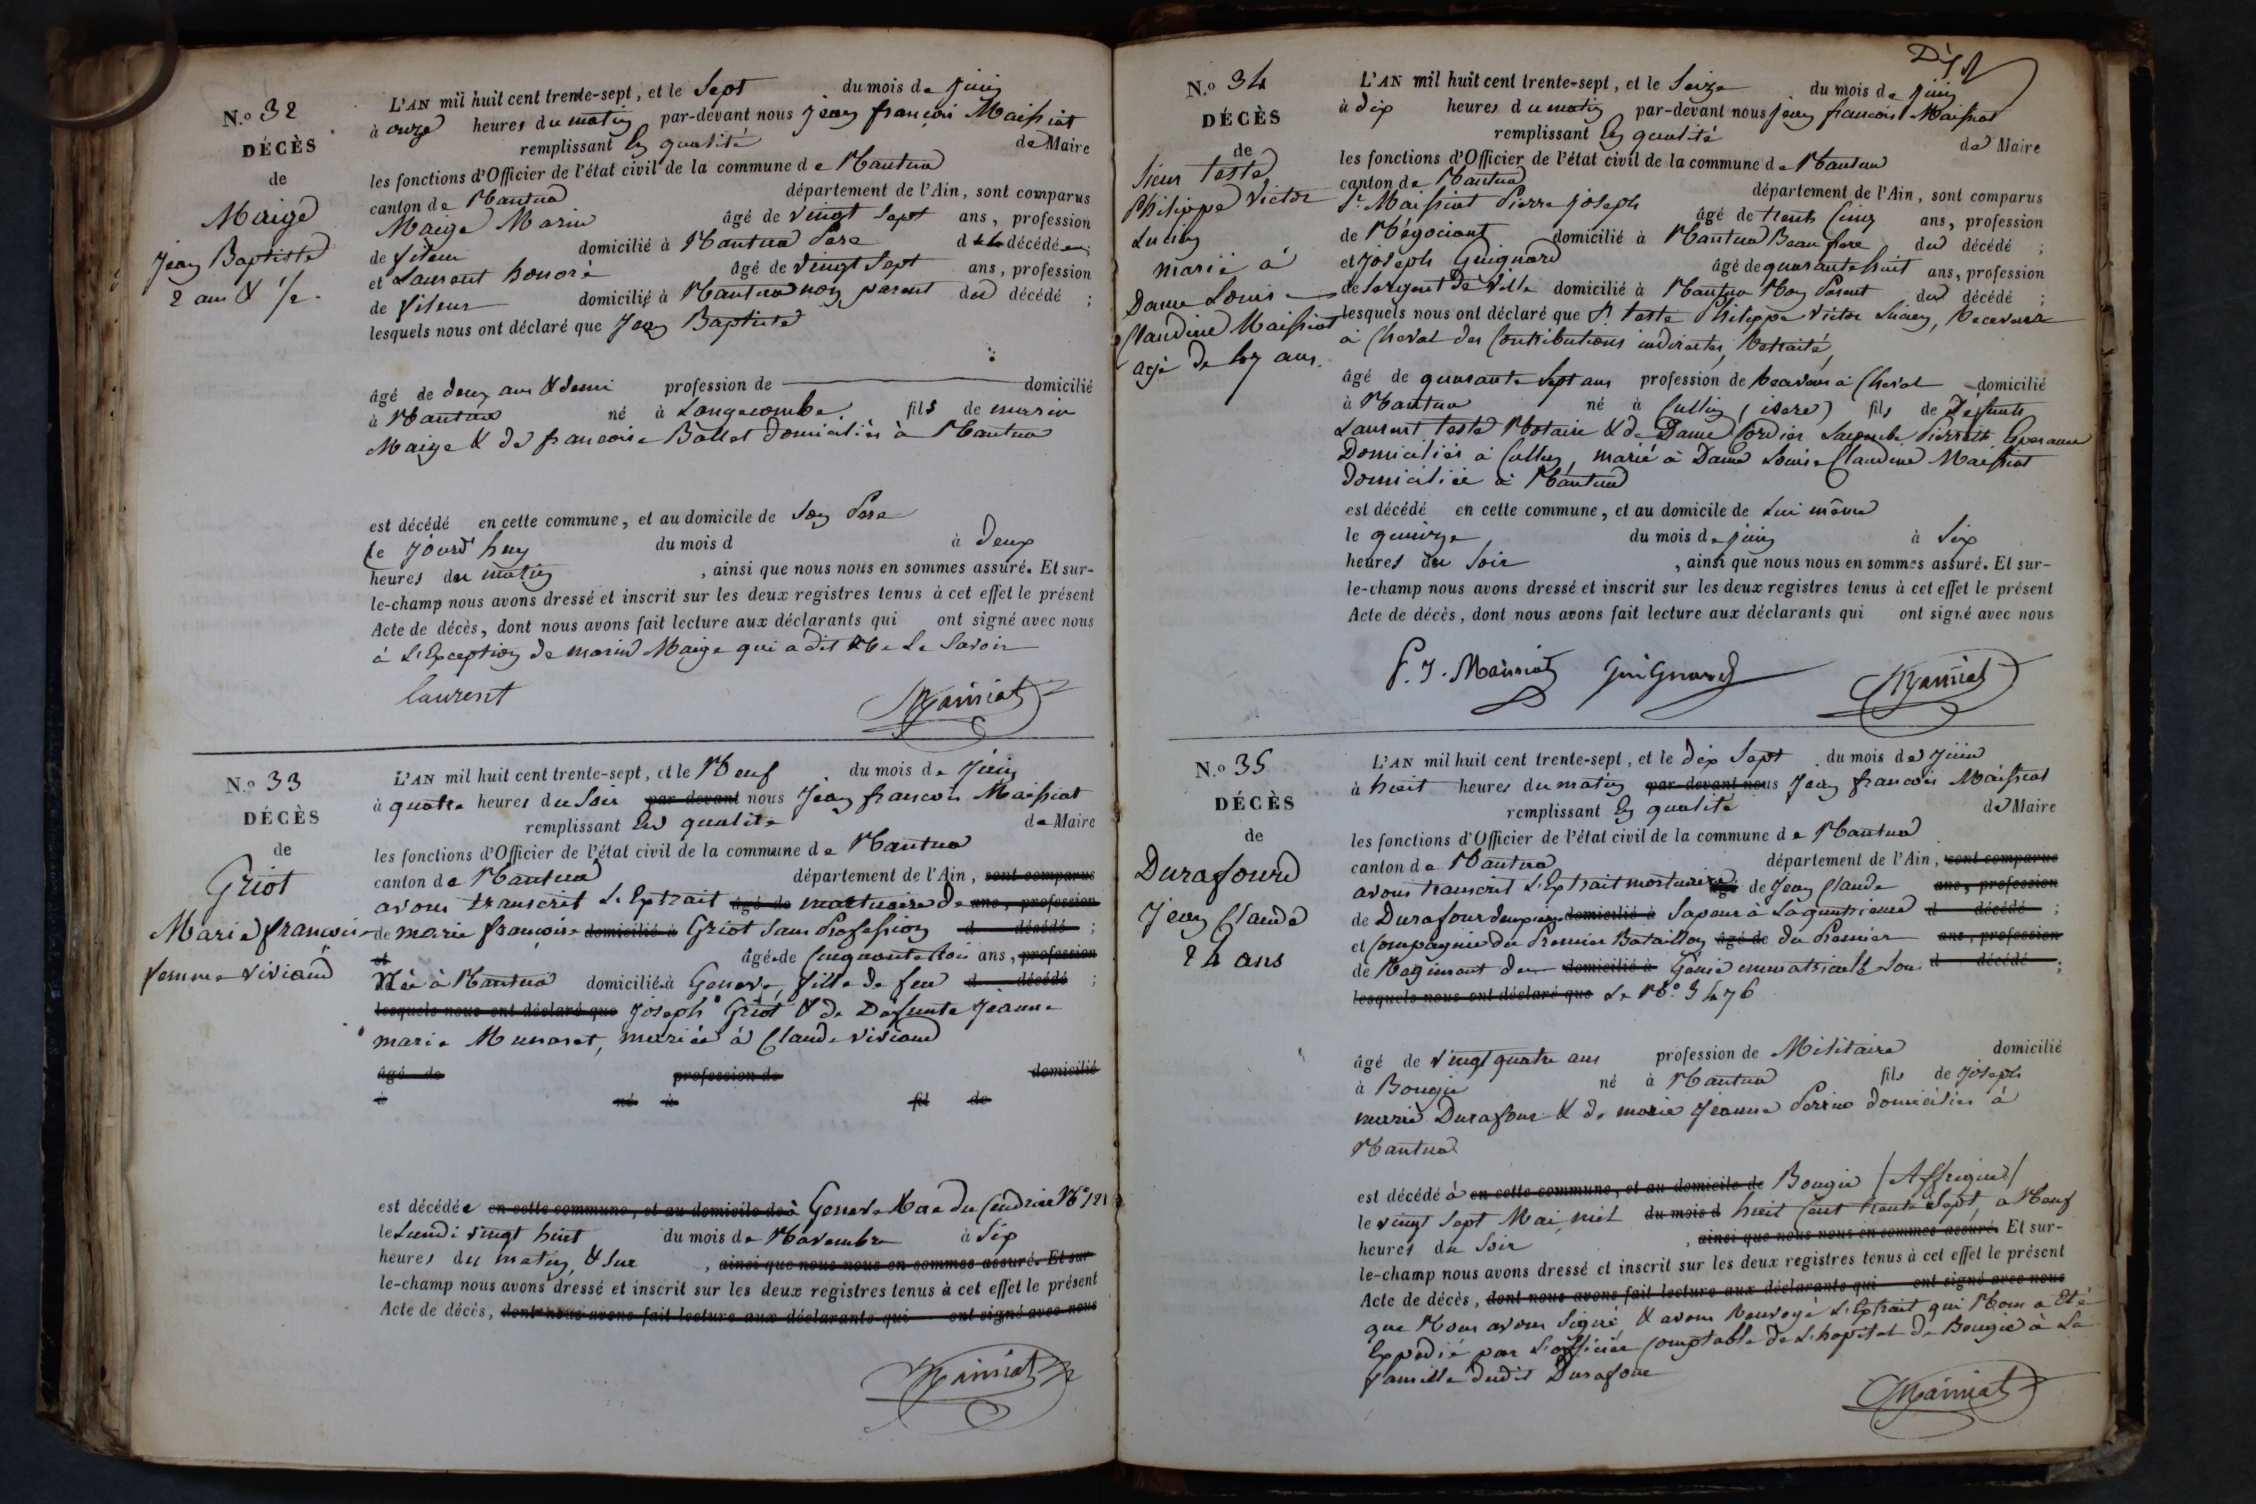 N.º 32
DÉCÈS
de
Maige
Jean Baptiste
2 ans & 1/2.
L'AN mil huit cent trente-sept, et le Sept du mois de juin
à onze heures du matin par-devant nous jean françois Maissiat
remplissant En qualité de Maire
les fonctions d'Officier de l'état civil de la commune de Nantua
canton de Nantua département de l'Ain, sont comparus
Maige Marin âgé de vingt Sept ans, profession
de fileur domicilié à Nantua Père du décédé ;
et Laurent honoré âgé de vingt Sept ans, profession
de fileur domicilié à Nantua non parent du décédé ;
lesquels nous ont déclaré que Jean Baptiste
âgé de deux ans & demi profession de domicilié
à Nantua né à Longecombe fils de marin
Maige & de francoise Ballet domiciliés à Nantua
est décédé en cette commune, et au domicile de Son Père
le jourd'huy du mois d à deux
heures du matin , ainsi que nous nous en sommes assuré. Et sur-
le-champ nous avons dressé et inscrit sur les deux registres tenus à cet effet le présent
Acte de décès, dont nous avons fait lecture aux déclarants qui ont signé avec nous
à L'Exception de marin Maige qui a dit Ne Le Savoir
Laurent Maissiat
N.º 33
DÉCÈS
de
Griot
Marie françoise
femme Viviand
L'AN mil huit cent trente-sept, et le Neuf du mois de juin
à quatre heures du Soir par-devant nous Jean francois Maissiat
remplissant En qualité de Maire
les fonctions d'Officier de l'état civil de la commune de Nantua
canton de Nantua département de l'Ain, sont comparus
avons transcrit L'Extrait âgé de mortuaire de ans, profession
de marie françoise domicilié à Griot Sans Profession d décédé ;
et âgée de Cinquante trois ans, profession
Née à Nantua domiciliée à Geneve, fille de feu d décédé ;
lesquels nous ont déclaré que Joseph Griot & de Defunte Jeanne
marie Munaret, mariée à Claude Viviand
âgé de profession de domicilié
à né à fil de
est décédée en cette commune, et au domicile de à Geneve Rue du Cendrier Nº 121
le Lundi vingt huit du mois de Novembre à Six
heures du matin, & Sur , ainsi que nous nous en sommes assuré. Et sur-
le-champ nous avons dressé et inscrit sur les deux registres tenus à cet effet le présent
Acte de décès, dont nous avons fait lecture aux déclarants qui ont signé avec nous
Maissiat
N.º 34
DÉCÈS
de
Sieur Teste
Philippe Victor
Lucien
marié à
Dame Louise
Claudine Maissiat
agé de 47 ans.
L'AN mil huit cent trente-sept, et le Seize du mois de juin
à dix heures du matin par-devant nous jean francois Maissiat
remplissant En qualité de Maire
les fonctions d'Officier de l'état civil de la commune de Nantua
canton de Nantua département de l'Ain, sont comparus
Sr. Maissiat Pierre joseph âgé de trente Cinq ans, profession
de Négociant domicilié à Nantua Beau frere du décédé ;
et joseph Guignard âgé de quarante huit ans, profession
de Sergent de Ville domicilié à Nantua Non Parent du décédé ;
lesquels nous ont déclaré que Sr. Teste Philippe Victor Lucien, Receveur
à Cheval des Contributions indirectes, Retraité,
âgé de quarante Sept ans profession de Receveur à Cheval domicilié
à Nantua né à Cullin (isere) fils de Défunts
Laurent Teste Notaire & de Dame Cordier Lacombe Pierrette Esperance
Domiciliés à Cullin, marié à Dame Louise Claudine Maissiat
domiciliée à Nantua
est décédé en cette commune, et au domicile de Lui même
le quinze du mois de juin à Six
heures du Soir , ainsi que nous nous en sommes assuré. Et sur-
le-champ nous avons dressé et inscrit sur les deux registres tenus à cet effet le présent
Acte de décès, dont nous avons fait lecture aux déclarants qui ont signé avec nous
P. J. Maissiat Guignard Maissiat
N.º 35
DÉCÈS
de
Durafourd
Jean Claude
24 ans
L'AN mil huit cent trente-sept, et le dix Sept du mois de juin
à huit heures du matin par-devant nous Jean francois Maissiat
remplissant En qualité de Maire
les fonctions d'Officier de l'état civil de la commune de Nantua
canton de Nantua département de l'Ain, sont comparus
avons transcrit L'Extrait mortuaire âgé de Jean Claude ans, profession
de Durafour domicilié à Sapeur à La quatrieme d décédé ;
et Compagnie du Premier Bataillon âgé de du Premier ans, profession
de Regiment du domicilié à Génie immatriculé Sous d décédé ;
lesquels nous ont déclaré que Le Nº. 3476
âgé de Vingt quatre ans profession de Militaire domicilié
à Bougie né à Nantua fils de joseph
marie Durafour & de marie Jeanne Perrin domiciliés à
Nantua
est décédé à en cette commune, et au domicile de Bougie (Affrique)
le vingt Sept Mai, mil du mois d huit Cent trente Sept, à Neuf
heures du Soir , ainsi que nous nous en sommes assuré. Et sur-
le-champ nous avons dressé et inscrit sur les deux registres tenus à cet effet le présent
Acte de décès, dont nous avons fait lecture aux déclarants qui ont signé avec nous
que Nous avons Signé & avons Renvoyé L'Extrait qui Nous a Eté
Expedié par L'officier Comptable de L'hopital de Bougie à La
famille dudit Durafour
Maissiat